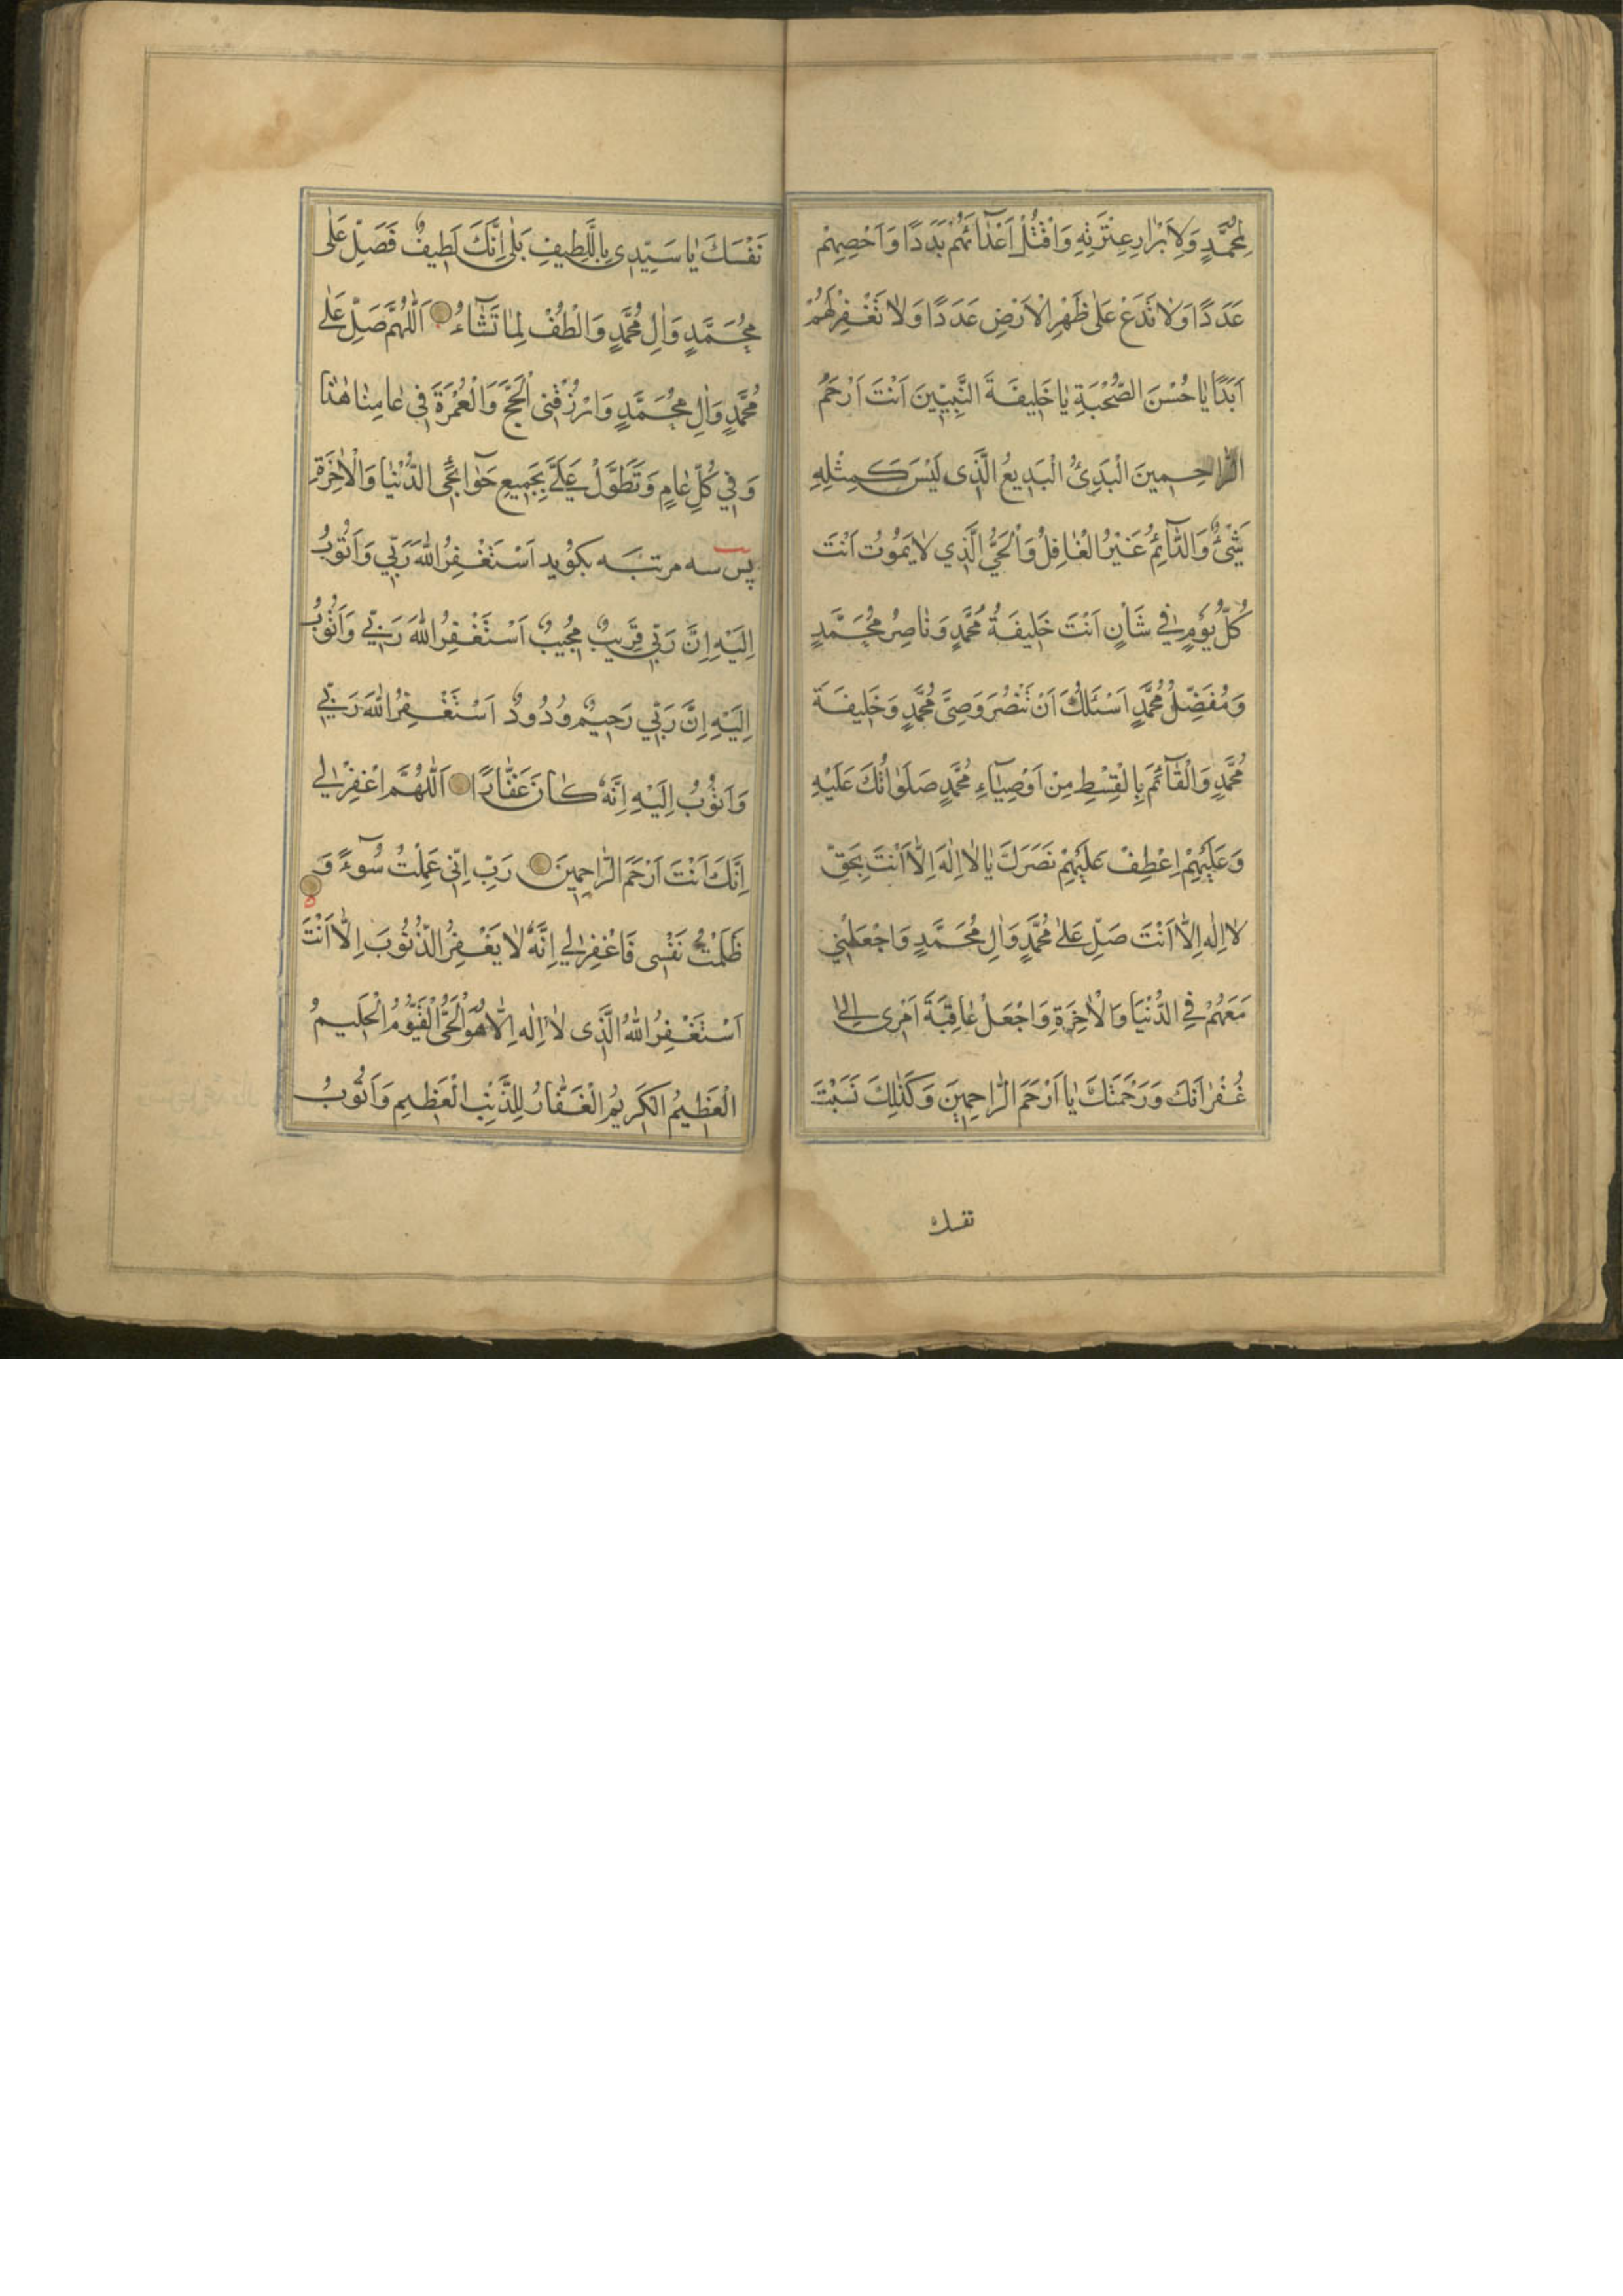 لِمُحَمَّدٍ وَلِاَبْرٰارِ عِتْرَتِهِ وَاقْتُلْ اَعْدٰٓائَهُمْ بَدَدًا وَاَحْصِهِمْ
عَدَدًا وَلٰا تَدَعْ عَلٰى ظَهْرِ الْاَرْضِ عَدَدًا وَلٰا تَغْفِرْ لَهُمْ
اَبَدًا يٰا حُسْنَ الصُّحْبَةِ يٰا خَلِيفَةَ النَّبِيّينَ اَنْتَ اَرْحَمُ
الرّٰاحِمِينَ الْبَدِىُٔ الْبَدِيعُ الَّذِى لَيْسَ كَمِثْلِهِ
شَىْءٌ وَالدّٰٓائِمُ غَيْرُ الْغٰافِلُ وَالْحَىُّ الَّذِي لٰا يَمُوتُ اَنْتَ
كُلَّ يَوْمٍ فِي شَاْنٍ اَنْتَ خَلِيفَةُ مُحَمَّدٍ وَنٰاصِرُ مُحَمَّدٍ
وَمُفَضِّلُ مُحَمَّدٍ اَسْئَلُكَ اَنْ تَنْصُرَ وَصِىَّ مُحَمَّدٍ وَخَلِيفَةَ
مُحَمَّدٍ وَالْقٰٓائِمَ بِالْقِسْطِ مِنْ اَوْصِيٰٓاءِ مُحَمَّدٍ صَلَوٰاتُكَ عَلَيْهِ
وَعَلَيْهِمْ اِعْطِفْ عَلَيْهِمْ نَصَرَكَ يٰا لٰا اِلٰهَ اِلّٰا اَنْتَ بِحَقِّ
لٰا اِلٰهَ اِلّٰا اَنْتَ صَلِّ عَلٰى مُحَمَّدٍ وَاٰلِ مُحَمَّدٍ وَاجْعَلْنِي
مَعَهُمْ فِي الدُّنْيٰا وَالْاٰخِرَةِ وَاجْعَلْ عٰاقِبَةَ اَمْرِى اِلٰى
غُفْرٰانِكَ وَرَحْمَتِكَ يٰا اَرْحَمَ الرّٰاحِمِينَ وَكَذٰلِكَ نَسَبْتَ
نفسك
نَفْسَكَ يٰا سَيِّدِى بِاللَّطِيفِ بَلٰى اِنَّكَ لَطِيفٌ فَصَلِّ عَلٰى
مُحَمَّدٍ وَاٰلِ مُحَمَّدٍ وَالْطُفْ لِمٰا تَشٰٓاءُ اَللّٰهُمَّ صَلِّ عَلٰى
مُحَمَّدٍ وَاٰلِ مُحَمَّدٍ وَارْزُقْنِى الْحَجَّ وَالْعُمْرَةَ فِي عٰامِنٰا هٰذٰا
وَفِي كُلِّ عٰامٍ وَتَطَوَّلْ عَلَىَّ بِجَمِيعِ حَوٰٓائِجِى الدُّنْيٰا وَالْاٰخِرَةِ
پس سه مرتبه بكوید اَسْتَغْفِرُ اللّٰهَ رَبِّي وَاَتُوبُ
اِلَيْهِ اِنَّ رَبِّي قَرِيبٌ مُجِيبٌ اَسْتَغْفِرُ اللّٰهَ رَبِّي وَاَتُوبُ
اِلَيْهِ اِنَّ رَبِّي رَحِيمٌ وَدُودٌ اَسْتَغْفِرُ اللّٰهَ رَبِّي
وَاَتُوبُ اِلَيْهِ اِنَّهُ كٰانَ غَفّٰارًا اَللّٰهُمَّ اغْفِرْ لِي
اِنَّكَ اَنْتَ اَرْحَمُ الرّٰاحِمِينَ رَبِّ اِنِّى عَمِلْتُ سُوٓءً وَ
ظَلَمْتُ نَفْسِى فَاغْفِرْ لِي اِنَّهُ لٰا يَغْفِرُ الذُّنُوبَ اِلّٰا اَنْتَ
اَسْتَغْفِرُ اللّٰهَ الَّذِى لٰا اِلٰهَ اِلّٰا هُوَ الْحَىُّ الْقَيُّومُ الْحَلِيمُ
الْعَظِيمُ الْكَرِيمُ الْغَفّٰارُ لِلذَّنْبِ الْعَظِيمِ وَاَتُوبُ